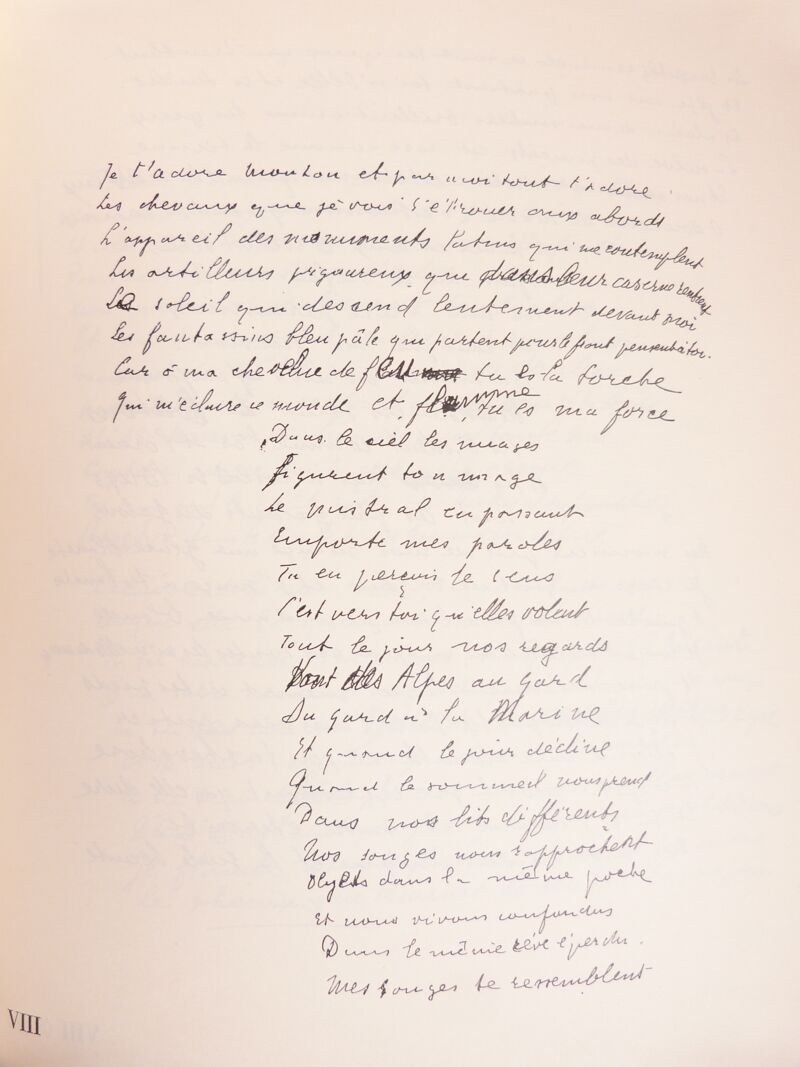 Je t'adore mon Lou et par moi tout t'adore
Les chevaux que je vois s'ébrouer aux abords
L'appareil des monuments latins qui me contemplent
Les artilleurs vigoureux que dans leur caserne rentrent
Le soleil qui descend lentement devant moi
Les fantassins bleu pâle qui partent pour le front pensent à toi.
Car ô ma chevelue de feu tu es la torche
Qui m'éclaire ce monde et flamme, tu es ma force
Dans le ciel les nuages
Figurent ton image
Le mistral en passant
Emporte mes paroles
Tu en perçois le sens
C'est vers toi qu'elles volent
Tout le jour nos regards
Vont des Alpes au Gard
Du Gard à la Marine
Et quand le jour décline
Quand le sommeil nous prend
Dans nos lits différents
Nos songes nous rapprochent
Objets dans la même poche
Et nous vivons confondus
Dans le même rêve éperdu.
Mes songes te ressemblent
VIII